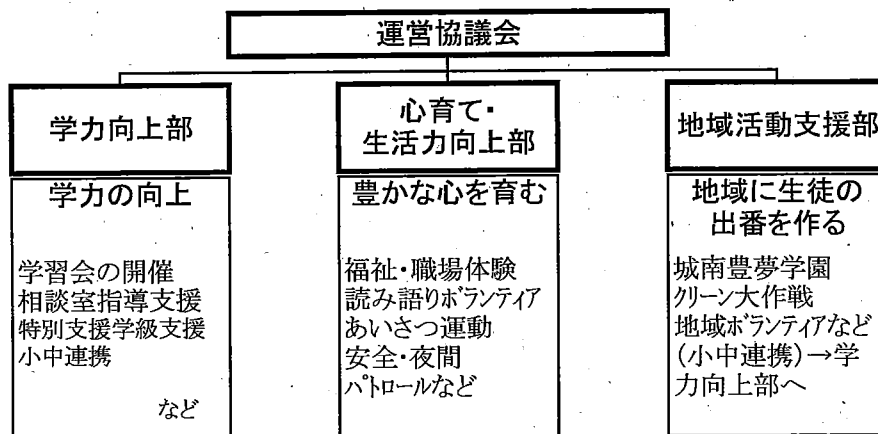 運営協議会
学力向上部
学力の向上
学習会の開催
相談室指導支援
特別支援学級支援
小中連携
など
心育て・
生活力向上部
豊かな心を育む
福祉・職場体験
読み語りボランティア
あいさつ運動
安全・夜間
パトロールなど
地域活動支援部
地域に生徒の
出番を作る
城南豊夢学園
クリーン大作戦
地域ボランティアなど
(小中連携)→学
力向上部へ